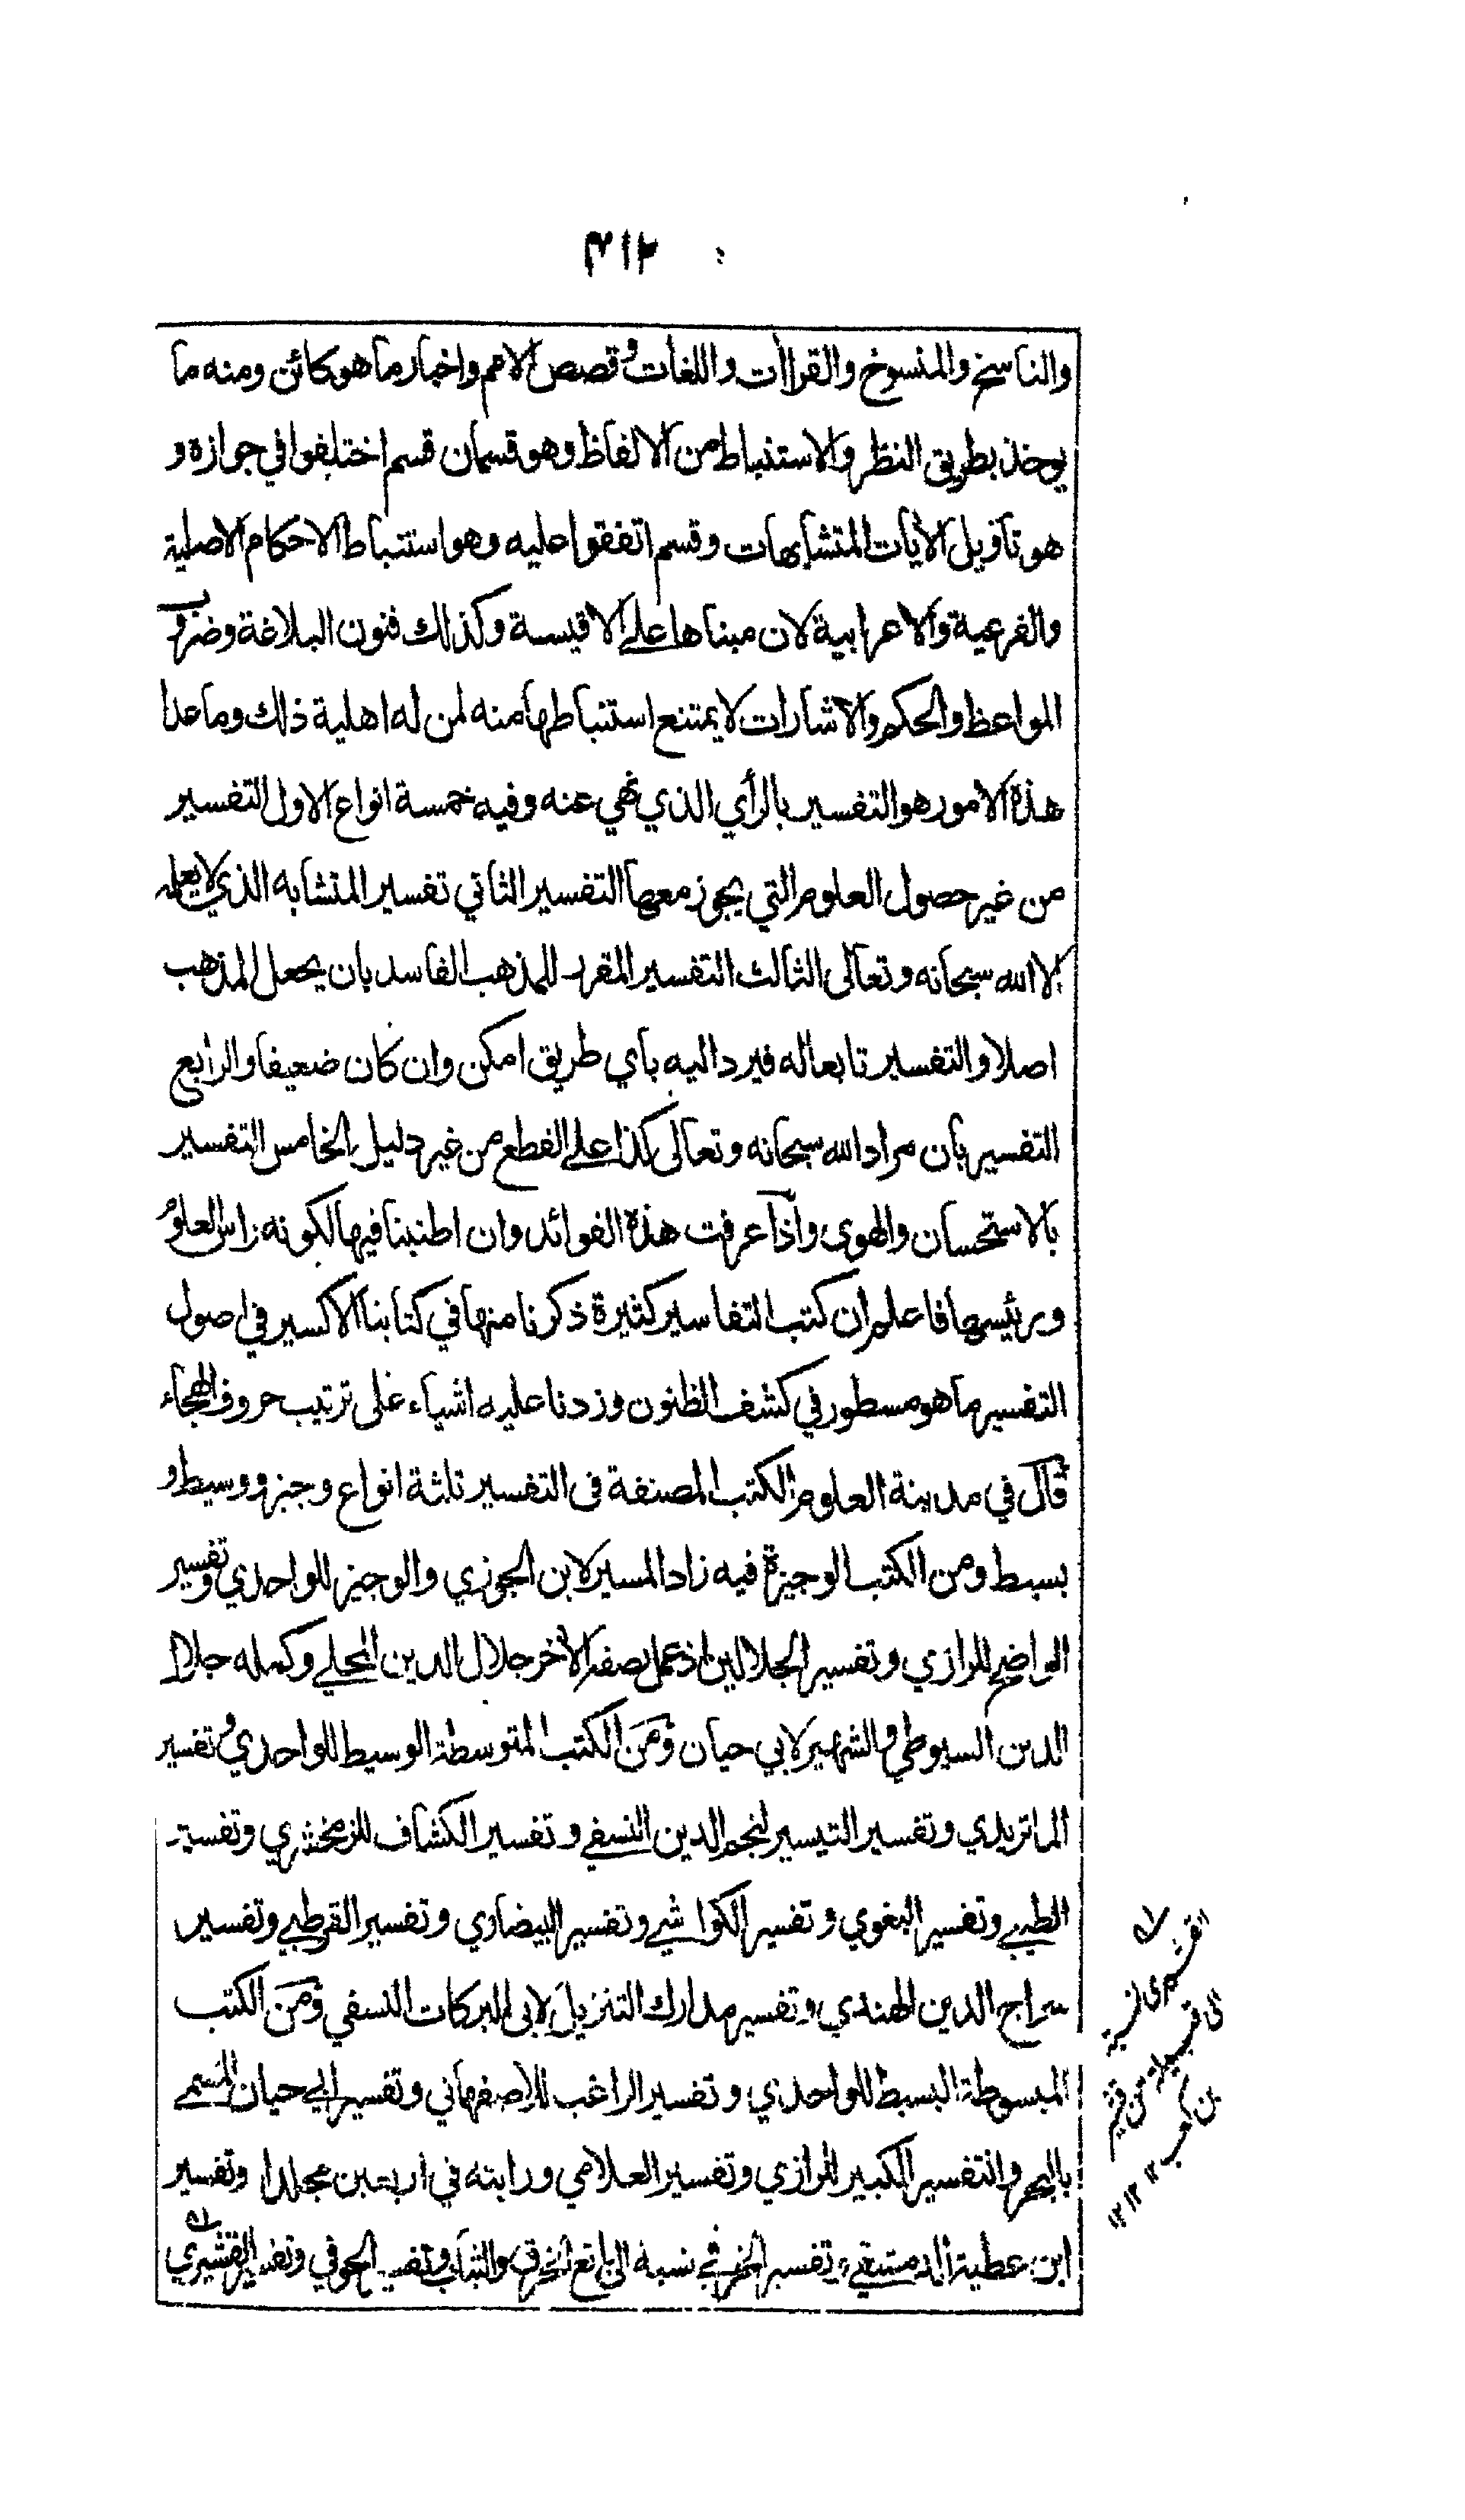 ٣١٢
والناسخ والمنسوخ والقراات واللغات وقصص الامم واخبار ما هو كائن ومنه ما
يوخذ بطريق النظر والاستنباط من الالفاظ وهو قسمان قسم اختلفوا في جوازه و
هو تأويل الآيات المتشابهات وقسم اتفقوا عليه وهو استنباط الاحكام الاصلية
والفرعية والاعرابية لان مبناها على الاقيسة وكذلك فنون البلاغة وضروب
المواعظ والحكم والاشارات لا يمتنع استنباطها منه لمن له اهلية ذلك وما عدا
هذه الامور هو التفسير بالرأي الذي نهي عنه وفيه خمسة انواع الاول التفسير
من غير حصول العلوم التي يجوز معها التفسير الثاني تفسير المتشابه الذي لا يعلمه
الا الله سبحانه وتعالى الثالث التفسير المقرر للمذهب الفاسد بان يجعل المذهب
اصلا والتفسير تابعا له فيرد اليه باي طريق امكن وان كان ضعيفا والرابع
التفسير بان مراد الله سبحانه وتعالى كذا على القطع من غير دليل الخامس التفسير
بالاستحسان والهوى واذا عرفت هذه الفوائد وان اطنبنا فيها لكونه راس العلوم
ورئيسها فاعلم ان كتب التفاسير كثيرة ذكرنا منها في كتابنا الاكسير في اصول
التفسير ما هو مسطور في كشف الظنون وزدنا عليه اشياء على ترتيب حروف الهجاء
قال في مدينة العلوم الكتب المصنفة في التفسير ثلثة انواع وجيز ووسيط و
بسيط ومن الكتب الوجيزة فيه زاد المسير لابن الجوزي والوجيز للواحدي وتفسير
الواضح للرازي وتفسير الجلالين اذ عمل نصفه الآخر جلال الدين المحلي وكمله جلال
الدين السيوطي والشهير لابي حيان ومن الكتب المتوسطة الوسيط للواحدي وتفسير
الماتريدي وتفسير التيسير لنجم الدين النسفي وتفسير الكشاف للزمخشري وتفسير
الطيبي وتفسير البغوي وتفسير الكواشي وتفسير البيضاوي وتفسير القرطبي وتفسير
سراج الدين الهندي وتفسير مدارك التنزيل لابي البركات النسفي ومن الكتب
المبسوطة البسيط للواحدي وتفسير الراغب للاصفهاني وتفسير ابي حيان المسمى
بالبحر والتفسير الكبير للرازي وتفسير العلامي ورايته في اربعين مجلدا وتفسير
ابن عطية الدمشقي وتفسير الخرقي نسبة الى بائع الخرق والثياب وتفسير الحوفي وتفسير القشيري
القشيري نسبة
الى قشير
بن كعب
١٢